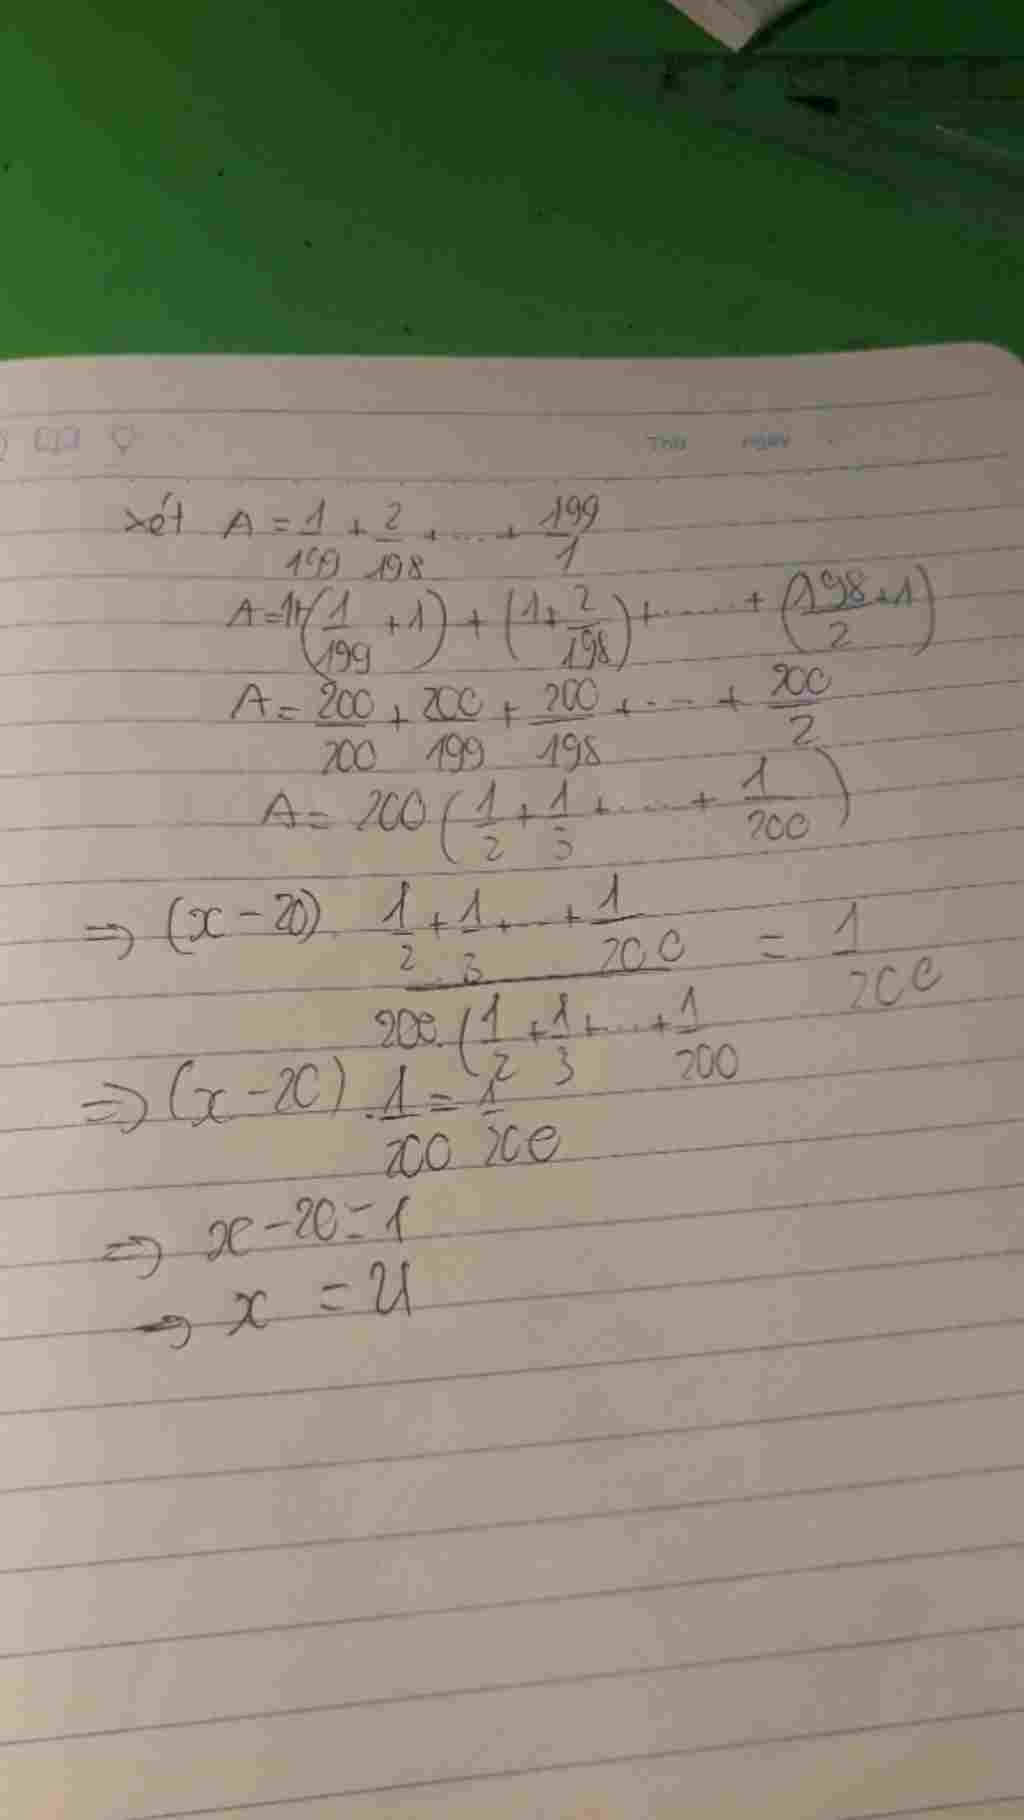 Thứ Ngày
xét A = 1/199 + 2/198 + ... + 199/1
A = 1 + (1/199 + 1) + (1 + 2/198) + ...... + (198/2 + 1)
A = 200/200 + 200/199 + 200/198 + ... + 200/2
A = 200 (1/2 + 1/3 + .... + 1/200)
=> (x - 20). (1/2 + 1/3 + ... + 1/200) / (200. (1/2 + 1/3 + ... + 1/200) = 1/200
=> (x - 20) . 1/200 = 1/200
=> x - 20 = 1
=> x = 21